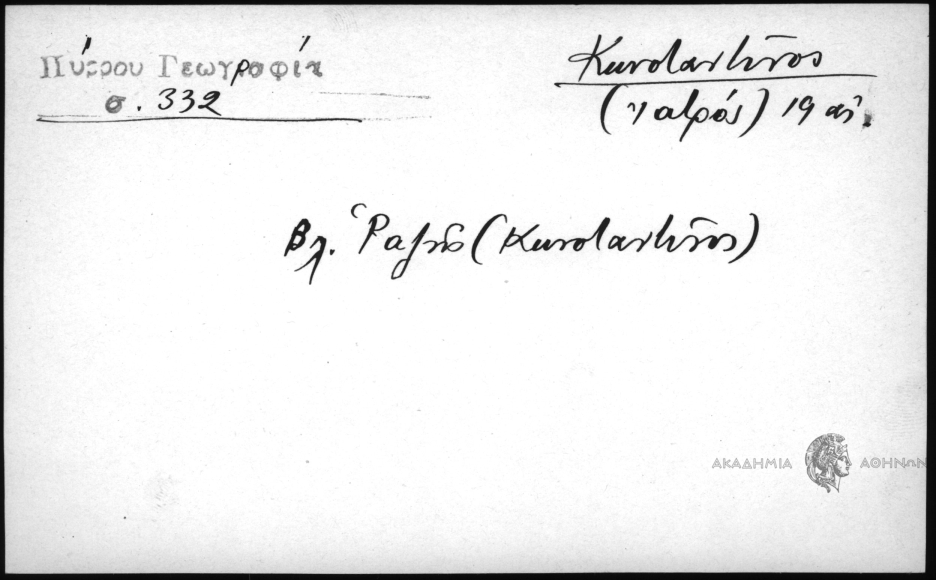 Πύρρου Γεωγραφία
σ. 332
Κωνσταντῖνος
(ἰατρός) 19 αἰ.
Βλ. (Κωνσταντῖνος)
ΑΚΑΔΗΜΙΑ ΑΘΗΝΩΝ